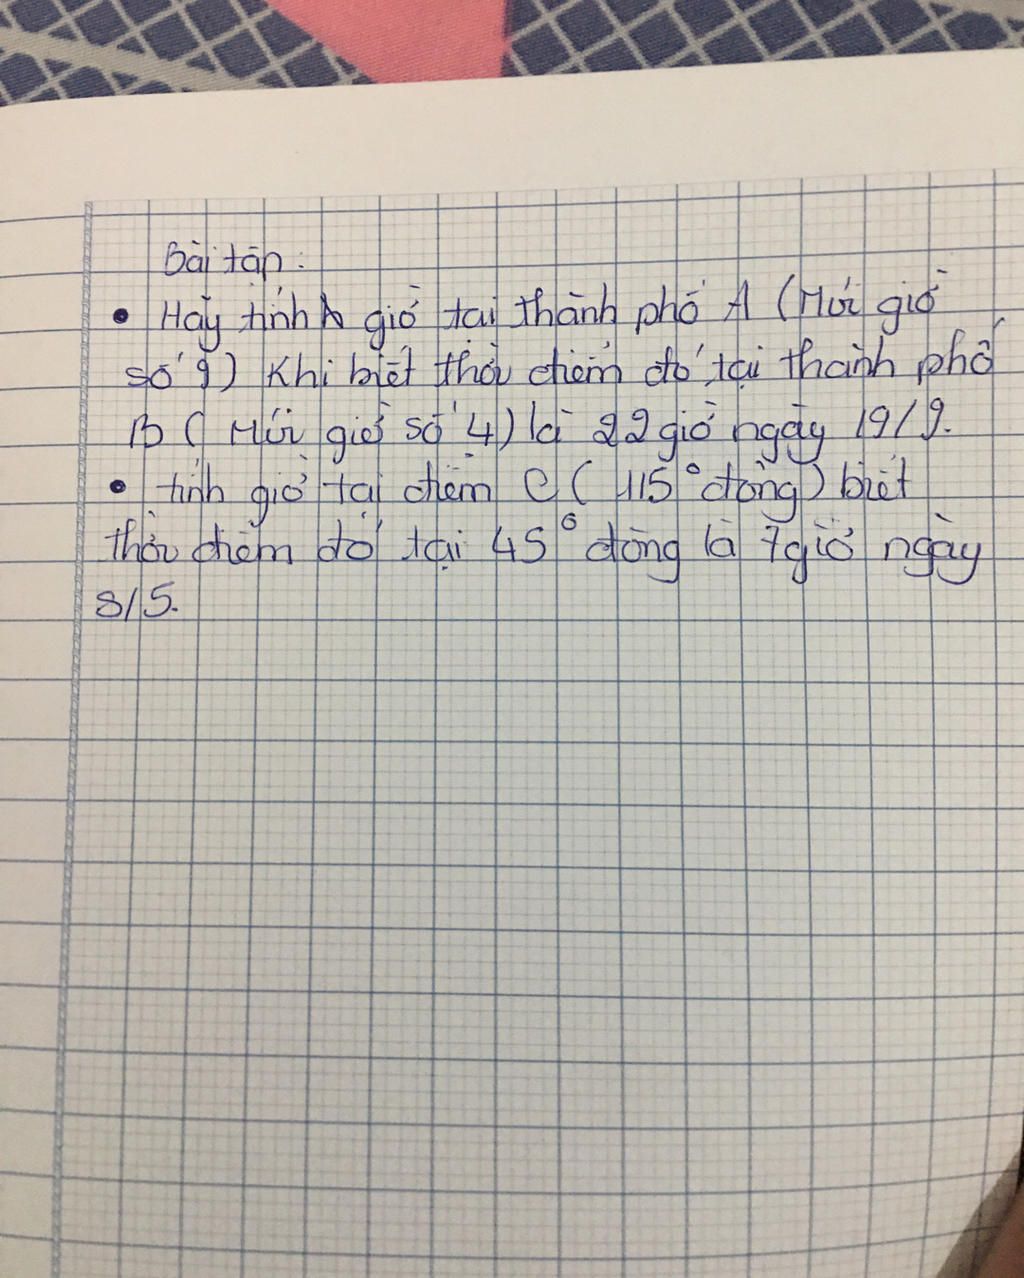 Bài tập:
• Hãy tính giờ tại thành phố A (Múi giờ
số 9) Khi biết thời điểm đó tại thành phố
B (Múi giờ số 4) là 22 giờ ngày 19/9.
• tính giờ tại điểm C (115° đông) biết
thời điểm đó tại 45° đông là 7 giờ ngày
8/5.